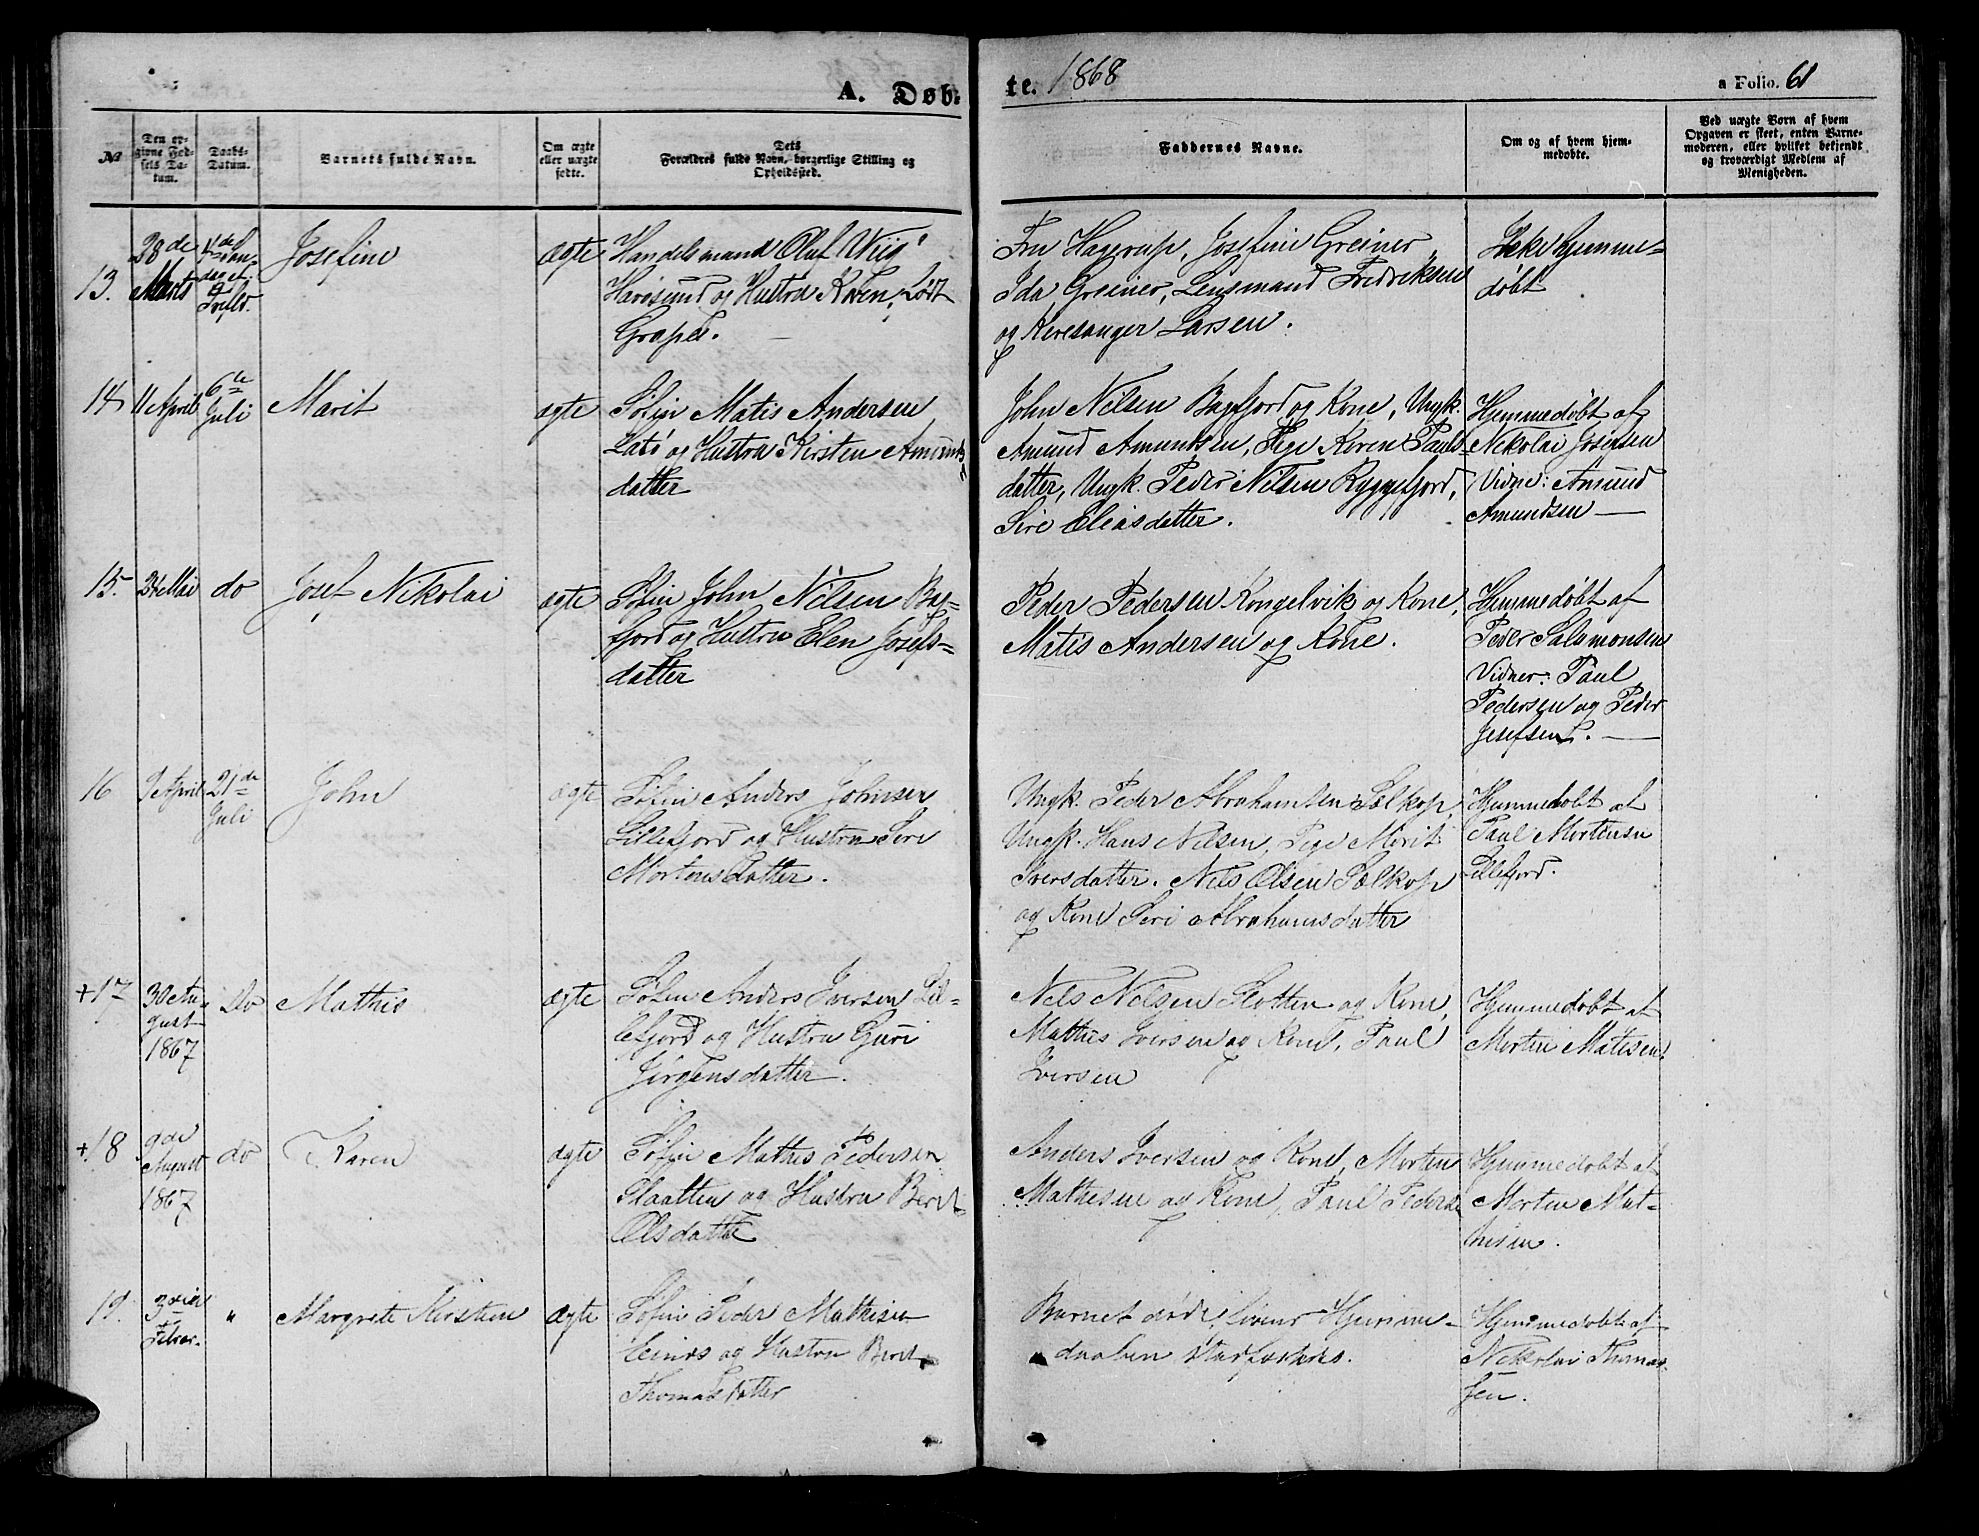 A. Døb-
te. 1868
a Folio. 61
№
Den op-
givne Fød-
sels Da-
tum.
Daabs-
Datum.
Barnets fulde Navn.
Om ægte
eller uægte
fødte.
Dets
Forældres fulde Navn, borgerlige Stilling og
Opholdssted.
Faddernes Navne.
Om og af hvem hjem-
medøbte.
Ved uægte Born af hvem
Opgaven er skeet, enten Barne-
moderen, eller hvilket bekjendt
og troværdigt Medlem af
Menigheden.
13.
28de
Marts
4de Søn-
dag ef
Trefld.
Josefine
ægte
Handelsmand Oluf
Havøsund og Hustru Karen, født
Grape.
Fru Hagerup, Josefine Greiner,
Ida Greiner, Lensmand Fredriksen
og Kiresanger Larsen.
Ikke hjemme-
døbt
14
11 April
6te
Juli
Marit
ægte
Søfin Matis Andersen
Latø og Hustru Kirsten Amunds
datter
John Nilsen Bagfjord og Kone, Ungk.
Amund Amundsen, Pige Karen Pauls-
datter, Ungk. Peder Nilsen Ryggefjord,
Siri Eliasdatter.
Hjemmedøbt af
Nikolai Josefsen
Vidne: Amund
Amundsen —
15.
24 Mai
do
Josef Nikolai
ægte
Søfin John Nilsen Bag-
fjord og Hustru Elen Josefs-
datter
Peder Pedersen Kongelvik og Kone,
Matis Andersen og Kone.
Hjemmedøbt af
Peder Salamonsen
Vidner: Paul
Pedersen og Peder
Josefsen. —
16
9 April
21de
Juli
John
ægte
Søfin Anders Johnsen
Lillefjord og Hustru Siri
Mortensdatter.
Ungk. Peder Abrahamsen Sælkop,
Ungk. Hans Nilsen, Pige Marit
Iversdatter. Nils Olsen Sælkop
og Kone Siri Abrahamsdatter
Hjemmedøbt af
Paul Mortensen
Lillefjord.
+17
30 Au-
gust
1867
Do
Mathis
ægte
Søfin Anders Iversen Lil-
lefjord og Hustru Guri
Jørgensdatter.
Nils Nilsen Slotten og Kone,
Mathis Iversen og Kone, Paul
Iversen
Hjemmedøbt af
Morten Matisen
+18
9de
August
1867
do
Karen
ægte
Søfin Mathis Pedersen
Slaatten og Hustru Berit
Olsdatter
Anders Iversen og Kone, Morten
Mathisen og Kone, Paul Peders.
Hjemmedøbt af
Morten Mat-
hisen.
19.
3die
Febr.
"
Margrete Kirstine
ægte
Søfin Peder Mathisen
og Hustru Berit
Thomasdatter
Barnet døde, førend Hjemme-
daaben stadfæstedes.
Hjemmedøbt af
Nikolai Thomas-
sen.